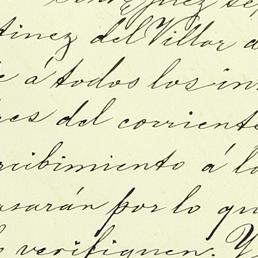 tinez del Villar a
é á todos los in
res del corriente
rcibimiento á lo
asarán por lo qu
verifiquen. Y